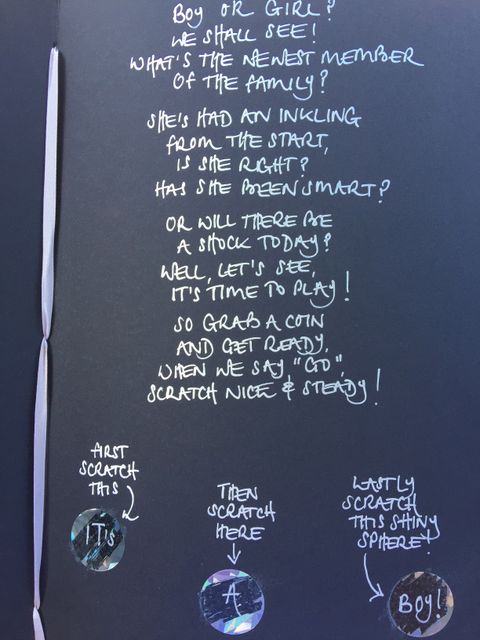 BOY OR GIRL?
WE SHALL SEE!
WHAT'S THE NEWEST MEMBER
OF THE FAMILY?
SHE'S HAD AN INKLING
FROM THE START,
IS SHE RIGHT?
HAS SHE BEEN SMART?
OR WILL THERE BE
A SHOCK TODAY?
WELL, LET'S SEE,
IT'S TIME TO PLAY!
SO GRAB A COIN
AND GET READY,
WHEN WE SAY "GO",
SCRATCH NICE & STEADY!
FIRST
SCRATCH
THIS
IT'S
THEN
SCRATCH
HERE
A
LASTLY
SCRATCH
THIS SHINY
SPHERE!
BOY!